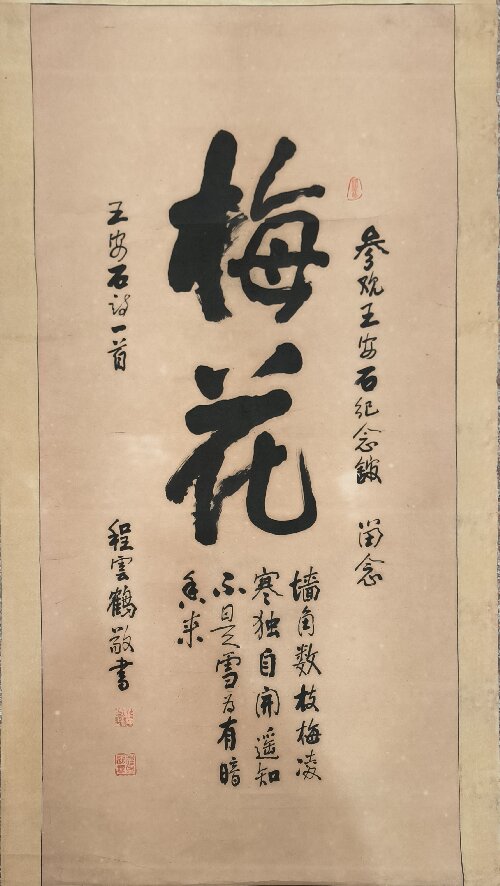 参观王安石纪念馆 留念
梅花
墙角数枝梅凌
寒独自开遥知
不是雪为有暗
香来
王安石诗一首
程雲鶴敬書